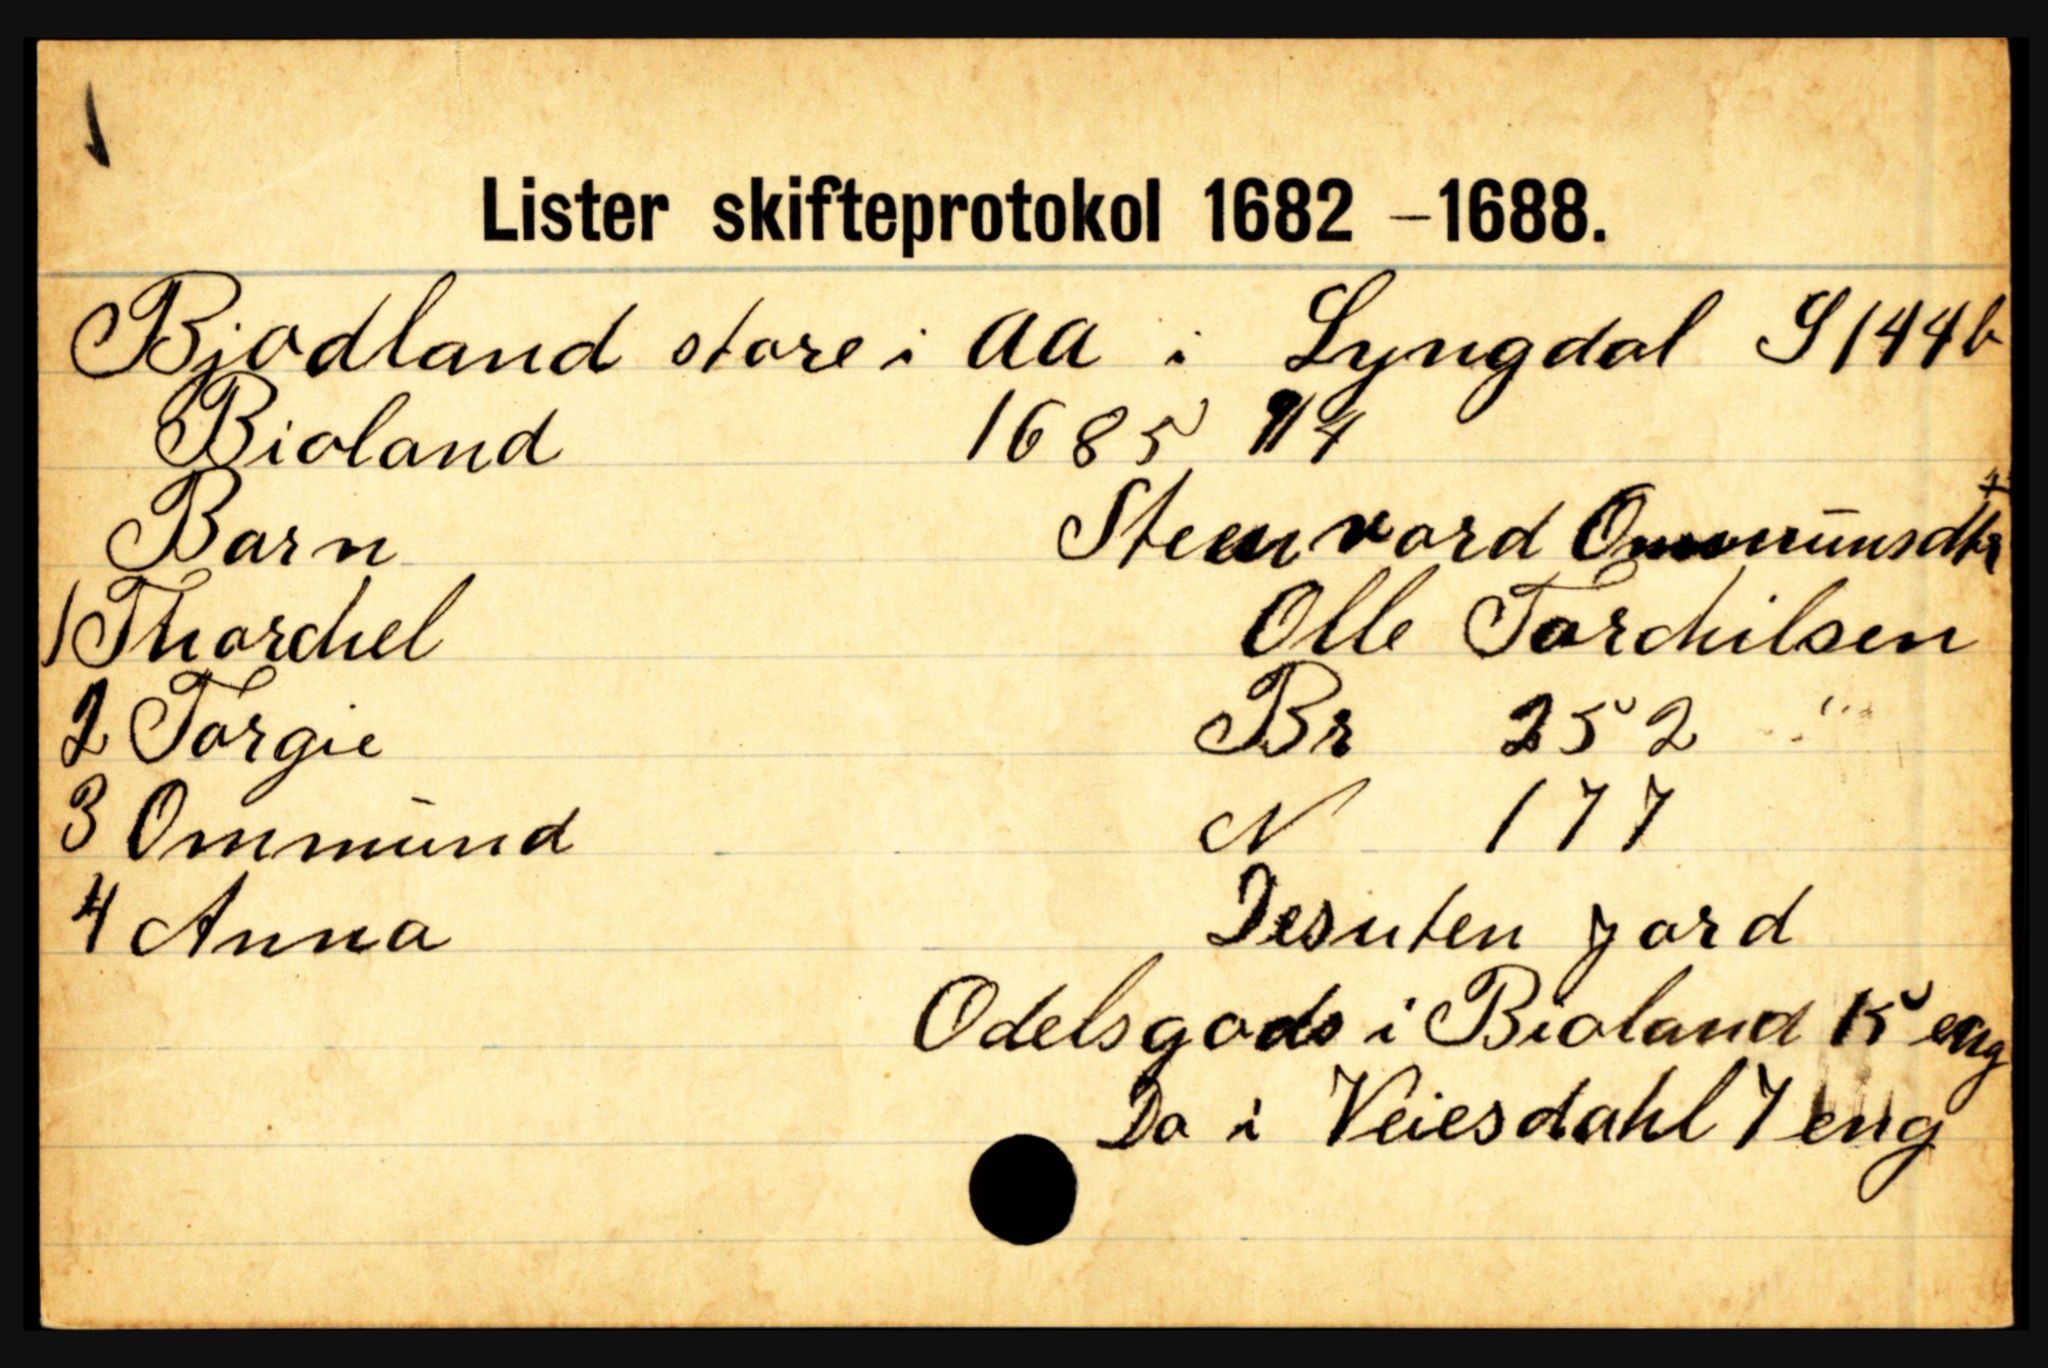 Lister skifteprotokol 1682 – 1688.
Bjodland store i AA i Lyngdal S 144b
Bioland 1685 9/4
Barn Steenvord Ommünsdtr +
1 Thorchel Olle Torchilsen
2 Torgie Br 252
3 Ommünd N 177
4 Anna Desuten jord
Odelsgods i Bioland 15 eng
Do i Veiesdahl 7 eng